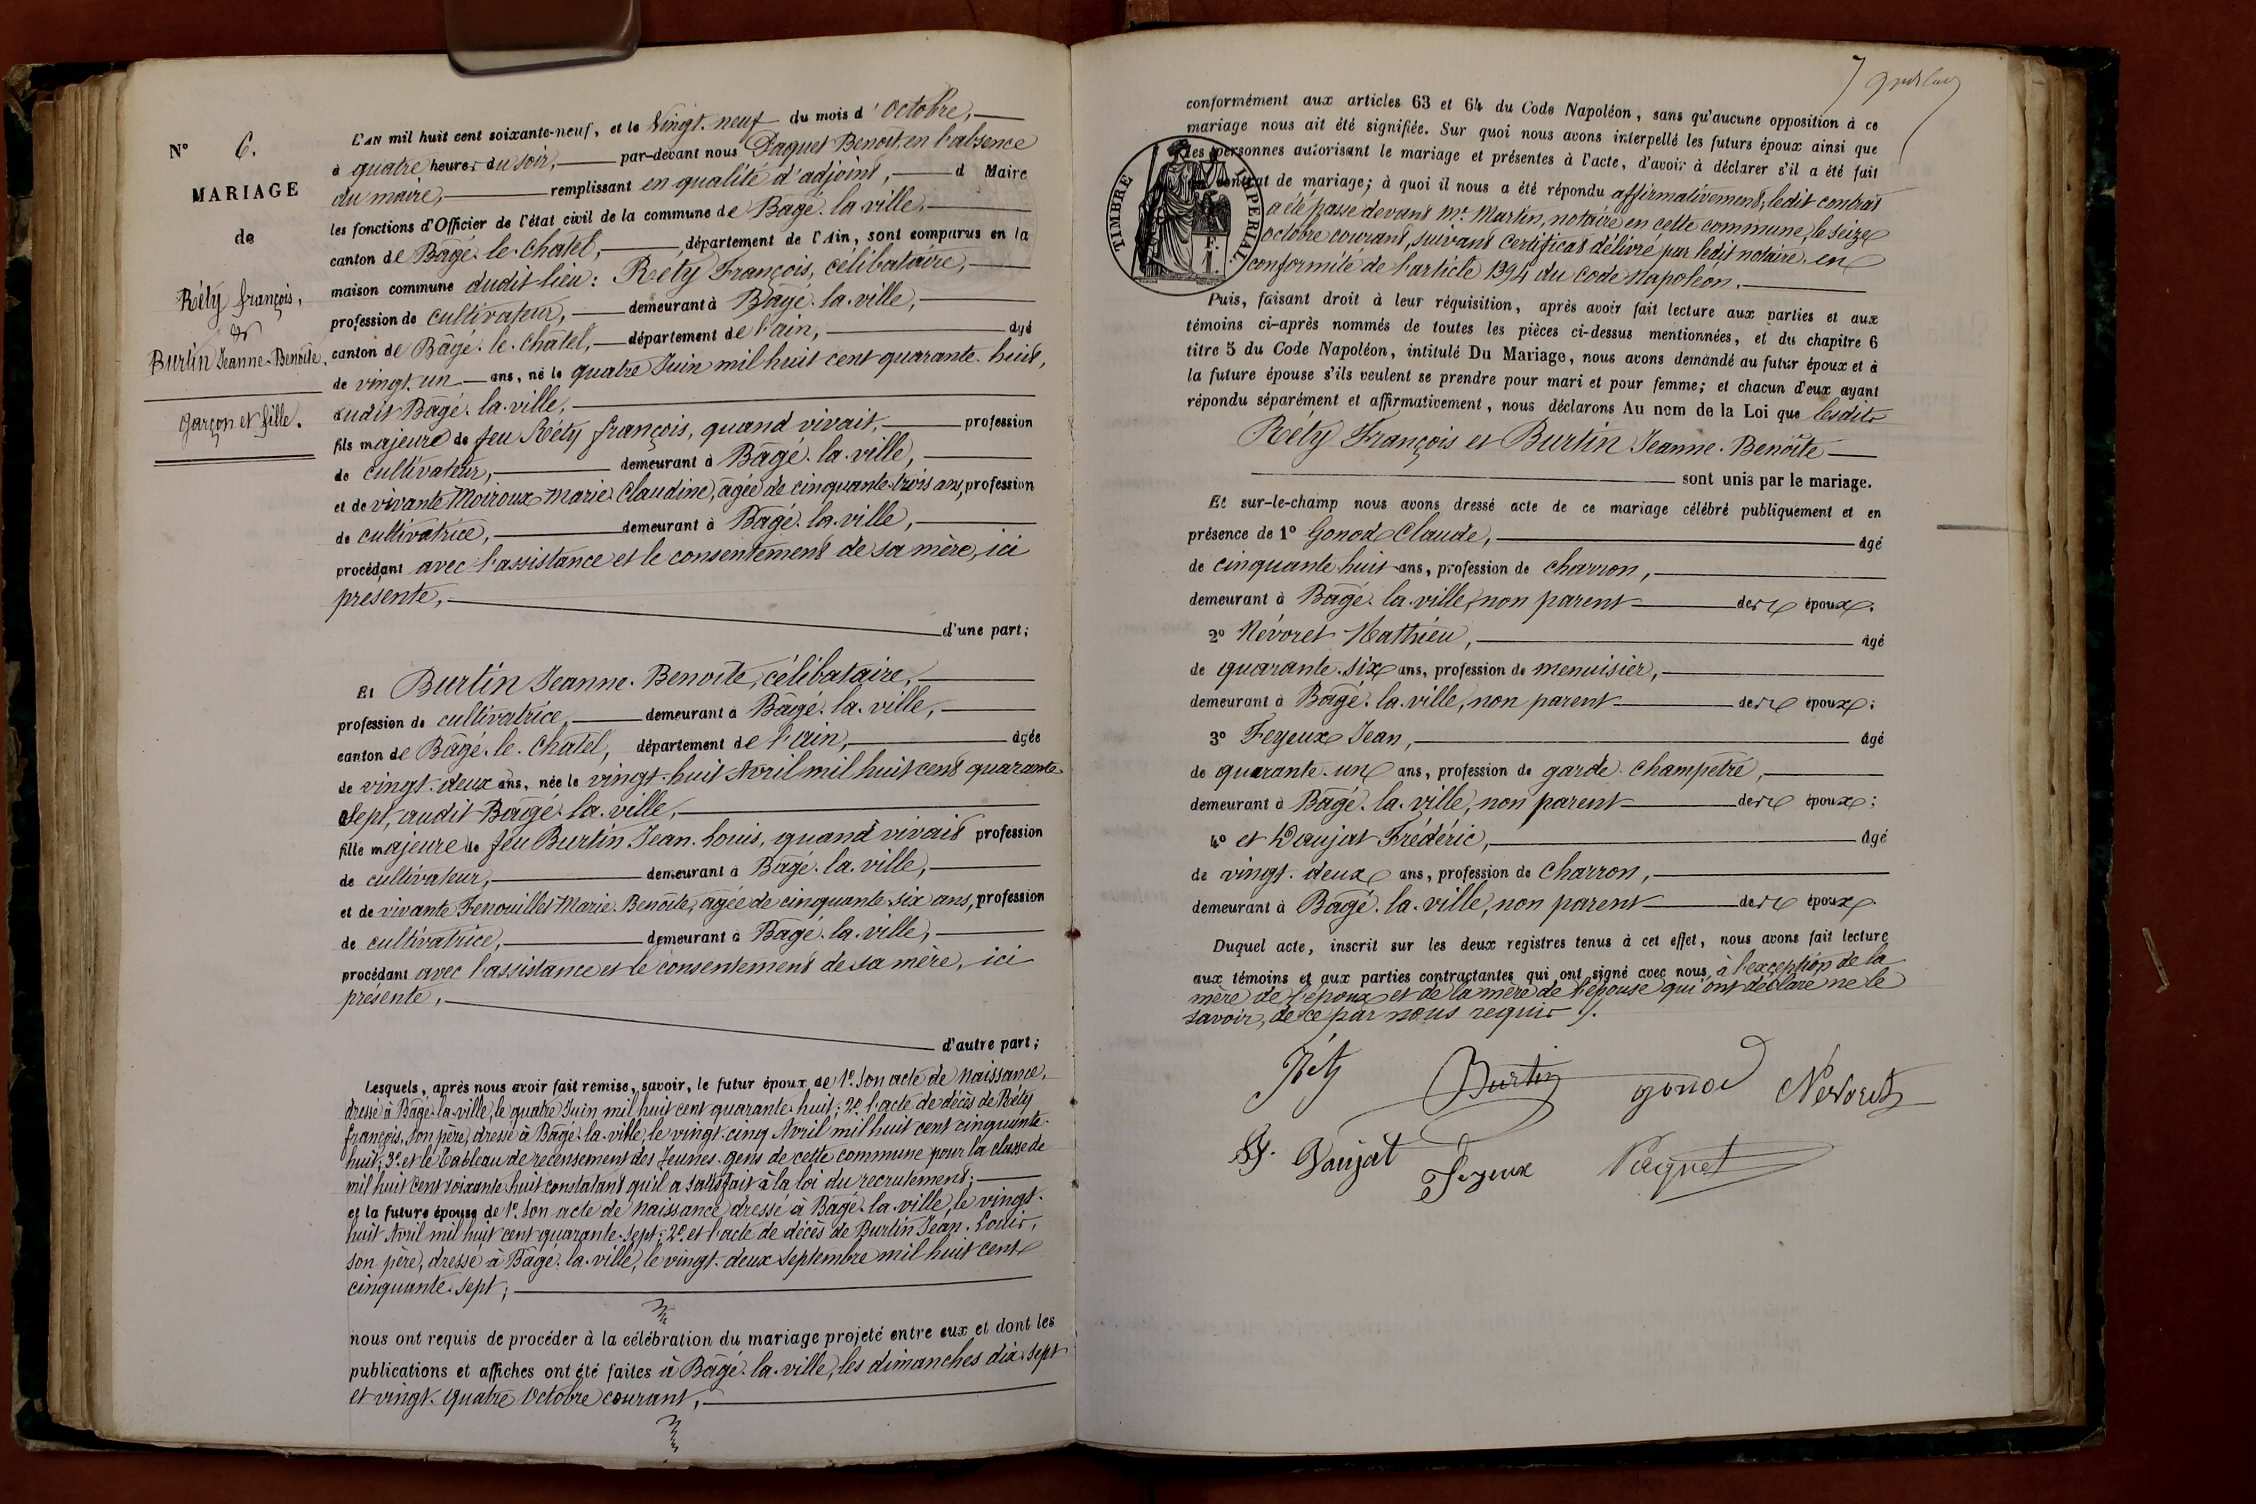 N° 6.
MARIAGE
de
Réty françois,
&
Burtin Jeanne-Benoîte.
garçon et fille.
L'AN mil huit cent soixante-neuf, et le Vingt-neuf du mois d'Octobre,
à quatre heures du soir, par-devant nous Paquet Benoit, en l'absence
du maire, remplissant en qualité d'adjoint, d Maire
les fonctions d'Officier de l'état civil de la commune de Bâgé-la-ville,
canton de Bâgé-le-Chatel, département de l'Ain, sont comparus en la
maison commune dudit lieu: Réty François, célibataire,
profession de cultivateur, demeurant à Bâgé-la-ville,
canton de Bâgé-le-Châtel, département de l'ain, âgé
de vingt-un ans, né le quatre Juin mil huit cent quarante-huit,
audit Bâgé-la-ville,
fils majeure de feu Réty françois, quand vivait, profession
de cultivateur, demeurant à Bâgé-la-ville,
et de vivante Moiroux Marie-Claudine, âgée de cinquante-trois ans, profession
de cultivatrice, demeurant à Bâgé-la-ville,
procédant avec l'assistance et le consentement de sa mère, ici
présente,
d'une part;
Et Burtin Jeanne-Benoîte, célibataire,
profession de cultivatrice, demeurant à Bâgé-la-ville,
canton de Bâgé-le-Chatel, département de l'ain, âgée
de vingt-deux ans, née le vingt-huit Avril mil huit cent quarante-
sept, audit Bâgé-la-ville,
fille majeure de feu Burtin Jean-Louis, quand vivait profession
de cultivateur, demeurant à Bâgé-la-ville,
et de vivante Fenouillet Marie-Benoîte, âgée de cinquante-six ans, profession
de cultivatrice, demeurant à Bâgé-la-ville,
procédant avec l'assistance et le consentement de sa mère, ici
présente,
d'autre part;
Lesquels, après nous avoir fait remise, savoir, le futur époux de 1° Son acte de Naissance,
dressé à Bâgé-la-ville, le quatre Juin mil huit cent quarante-huit; 2° l'acte de décès de Réty
françois, son père, dressé à Bâgé-la-ville, le vingt-cinq Avril mil huit cent cinquante-
huit; 3° et le Tableau de recensement des Jeunes-gens de cette commune pour la classe de
mil huit cent soixante-huit constatant qu'il a satisfait à la loi du recrutement;
et la future épouse de 1° Son acte de Naissance dressé à Bâgé-la-ville, le vingt-
huit Avril mil huit cent quarante-sept; 2° et l'acte de décès de Burtin Jean-Louis,
son père, dressé à Bâgé-la-ville, le vingt-deux Septembre mil huit cent
cinquante-sept;
nous ont requis de procéder à la célébration du mariage projeté entre eux et dont les
publications et affiches ont été faites à Bâgé-la-ville, les dimanches dix-sept
et vingt-quatre Octobre courant,
conformément aux articles 63 et 64 du Code Napoléon, sans qu'aucune opposition à ce
mariage nous ait été signifiée. Sur quoi nous avons interpellé les futurs époux ainsi que
les personnes autorisant le mariage et présentes à l'acte, d'avoir à déclarer s'il a été fait
contrat de mariage; à quoi il nous a été répondu affirmativement, ledit contrat
a été passé devant Me Martin, notaire en cette commune, le seize
Octobre courant, suivant Certificat délivré par ledit notaire en
conformité de l'article 1394 du Code Napoléon.
TIMBRE IMPERIAL
F.
1.
Puis, faisant droit à leur réquisition, après avoir fait lecture aux parties et aux
témoins ci-après nommés de toutes les pièces ci-dessus mentionnées, et du chapitre 6
titre 5 du Code Napoléon, intitulé Du Mariage, nous avons demandé au futur époux et à
la future épouse s'ils veulent se prendre pour mari et pour femme; et chacun d'eux ayant
répondu séparément et affirmativement, nous déclarons Au nom de la Loi que lesdits
Réty François et Burtin Jeanne-Benoîte
sont unis par le mariage.
Et sur-le-champ nous avons dressé acte de ce mariage célébré publiquement et en
présence de 1° Gonod Claude, âgé
de cinquante huit ans, profession de charron,
demeurant à Bâgé-la-ville, non parent des époux.
2° Névoret Mathieu, âgé
de quarante-six ans, profession de menuisier,
demeurant à Bâgé-la-ville, non parent des époux;
3° Feyeux Jean, âgé
de quarante-un ans, profession de garde-champetre,
demeurant à Bâgé-la-ville, non parent des époux;
4° et Daujat Frédéric, âgé
de vingt-deux ans, profession de Charron,
demeurant à Bâgé-la-ville, non parent des époux.
Duquel acte, inscrit sur les deux registres tenus à cet effet, nous avons fait lecture
aux témoins et aux parties contractantes qui ont signé avec nous, à l'exception de la
mère de l'époux et de la mère de l'épouse qui ont déclaré ne le
savoir, de ce par nous requis.
Réty Burtin gonod Névoret
Daujat Feyeux Paquet